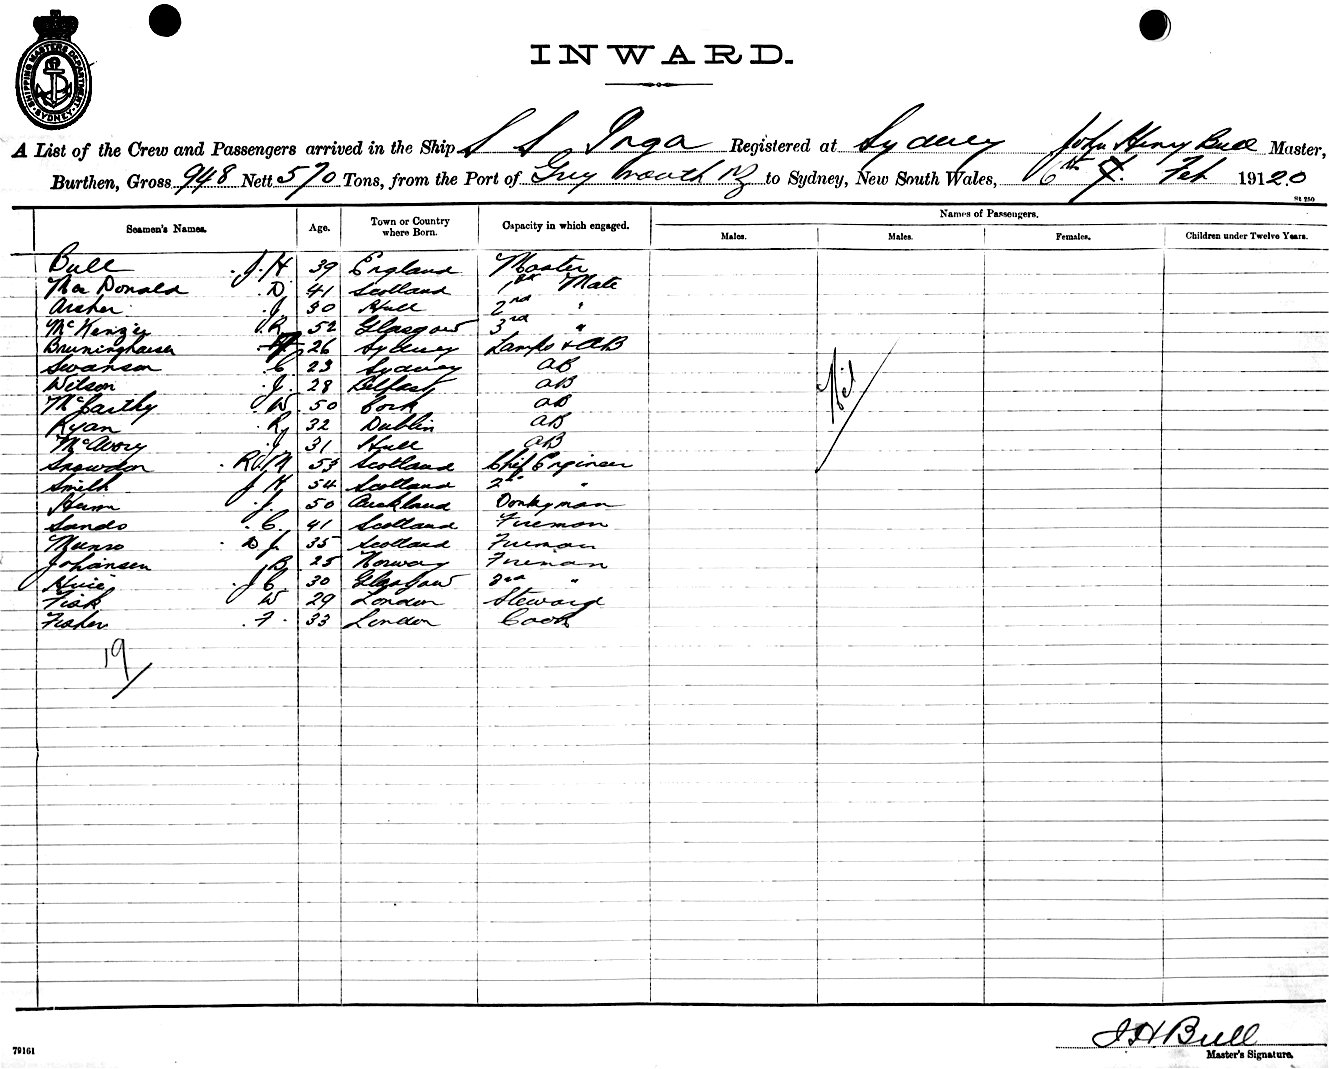 SHIPPING MASTERS DEPARTMENT SYDNEY
INWARD.
A List of the Crew and Passengers arrived in the Ship S S Inga Registered at Sydney John Henry Bull Master,
Burthen, Gross 948 Nett 570 Tons, from the Port of Grey mouth NZ to Sydney, New South Wales, 6th Feb 1920
Names of Passengers.
Seamen's Names. Age. Town or Country where Born. Capacity in which engaged. Males. Males. Females. Children under Twelve Years.
Bull J. H 39 England Master
Mac Donald D 41 Scotland 1st Mate
Archer J. 30 Hull 2nd "
McKenzie R 52 Glasgow 3rd "
Bruninghausen 26 Sydney Lamps & AB
Swanson C 23 Sydney AB
Wilson J. 28 Belfast AB
McCarthy W. 50 Cork AB
Ryan R 32 Dublin AB
McAvoy J 31 Hull AB
Snowdon 53 Scotland Chief Engineer
Smith J H 54 Scotland 2nd "
J. 50 Auckland Donkeyman
Sands C. 41 Scotland Fireman
Munro D J. 35 Scotland Fireman
Johansen B 25 Norway Fireman
J C 30 Glasgow 3rd "
Fisk W 29 London Steward
Fisher F. 33 London Cook
19
Nil
J H Bull
Master's Signature.
79161